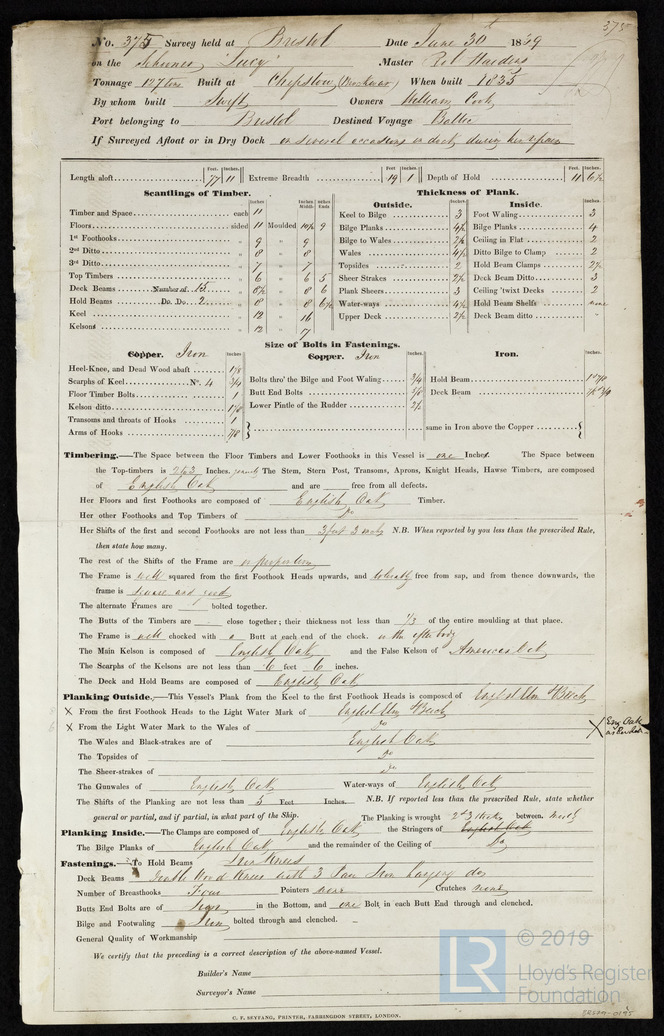 375
No. 375 Survey held at Bristol Date June 30th 1839
on the Schooner "Lucy" Master Rob Hardens
Tonnage 127 tons Built at Chepstow When built 1835
By whom built Swift Owners William Cook
Port belonging to Bristol Destined Voyage Baltic
If Surveyed Afloat or in Dry Dock on several occasions in dock during her repairs
Feet. Inches. Feet Inches. Feet Inches.
Length aloft 77 11 Extreme Breadth 19 1 Depth of Hold 11 6½
Scantlings of Timber. Thickness of Plank.
Timber and Space each 11
Floors sided 11 Moulded 10½ 9
1st Foothooks „ 9 „ 9
2nd Ditto „ 8 „ 8
3rd Ditto „ 7 „ 7
Top Timbers „ 6 „ 6 5
Deck Beams Number of 15 „ 8½ „ 8 6
Hold Beams Do. Do. 2 „ 8 „ 8 6½
Keel „ 12 „ 16
Kelsons „ 12 „ 7
Outside. Inches
Keel to Bilge 3
Bilge Planks 4½
Bilge to Wales 2½
Wales 4½
Topsides 2
Sheer Strakes 2½
Plank Sheers 3
Water-ways 4½
Upper Deck 2½
Inside. Inches
Foot Waling 3
Bilge Planks 4
Ceiling in Flat 2
Ditto Bilge to Clamp 2
Hold Beam Clamps 2½
Deck Beam Ditto 3
Ceiling 'twixt Decks 2
Hold Beam Shelfs none
Deck Beam ditto „
Size of Bolts in Fastenings.
Copper. Iron Inches
Heel-Knee, and Dead Wood abaft 1⅛
Scarphs of Keel No. 4 ¾
Floor Timber Bolts 1
Kelson ditto 1⅛
Transoms and throats of Hooks 1
Arms of Hooks ⅞
Copper. Iron Inches.
Bolts thro' the Bilge and Foot Waling ¾
Butt End Bolts
Lower Pintle of the Rudder 2½
Iron. Inches.
Hold Beam
Deck Beam
same in Iron above the Copper
Timbering.—The Space between the Floor Timbers and Lower Foothooks in this Vessel is one Inches. The Space between
the Top-timbers is 2 to 3 Inches. generally The Stem, Stern Post, Transoms, Aprons, Knight Heads, Hawse Timbers, are composed
of English Oak and are free from all defects.
Her Floors and first Foothooks are composed of English Oak Timber.
Her other Foothooks and Top Timbers of Do
Her Shifts of the first and second Foothooks are not less than 3 feet 2 inches N.B. When reported by you less than the prescribed Rule,
then state how many.
The rest of the Shifts of the Frame are in proportion
The Frame is well squared from the first Foothook Heads upwards, and tolerably free from sap, and from thence downwards, the
frame is square and good
The alternate Frames are bolted together.
The Butts of the Timbers are close together; their thickness not less than ⅓ of the entire moulding at that place.
The Frame is well chocked with a Butt at each end of the chock. in the after body
The Main Kelson is composed of English Oak and the False Kelson of American Oak
The Scarphs of the Kelsons are not less than 6 feet 6 inches.
The Deck and Hold Beams are composed of English Oak
Planking Outside.—This Vessel's Plank from the Keel to the first Foothook Heads is composed of English Elm & Beech
X From the first Foothook Heads to the Light Water Mark of English Elm & Beech
X From the Light Water Mark to the Wales of Do
X Eng Oak
The Wales and Black-strakes are of English Oak
The Topsides of Do
The Sheer-strakes of Do
The Gunwales of English Oak Water-ways of English Oak
The Shifts of the Planking are not less than 5 Feet Inches. N.B. If reported less than the prescribed Rule, state whether
general or partial, and if partial, in what part of the Ship. The Planking is wrought 2 & 3 strakes between.
Planking Inside.—The Clamps are composed of English Oak the Stringers of English Oak
The Bilge Planks of English Oak and the remainder of the Ceiling of Do
Fastenings.—To Hold Beams Iron Knees
Deck Beams Wood Knees with 3 Pair Iron hanging do
Number of Breasthooks Four Pointers none Crutches none
Butts End Bolts are of Iron in the Bottom, and one Bolt in each Butt End through and clenched.
Bilge and Footwaling Iron bolted through and clenched.
General Quality of Workmanship
We certify that the preceding is a correct description of the above-named Vessel.
Builder's Name
Surveyor's Name
C. F. SEYFANG, PRINTER, FARRINGDON STREET, LONDON.
LR © 2019
Lloyd's Register
Foundation